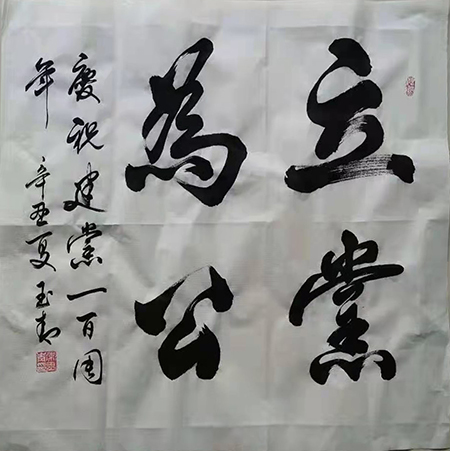 立黨
為公
慶祝建黨一百周
年
辛丑夏玉書